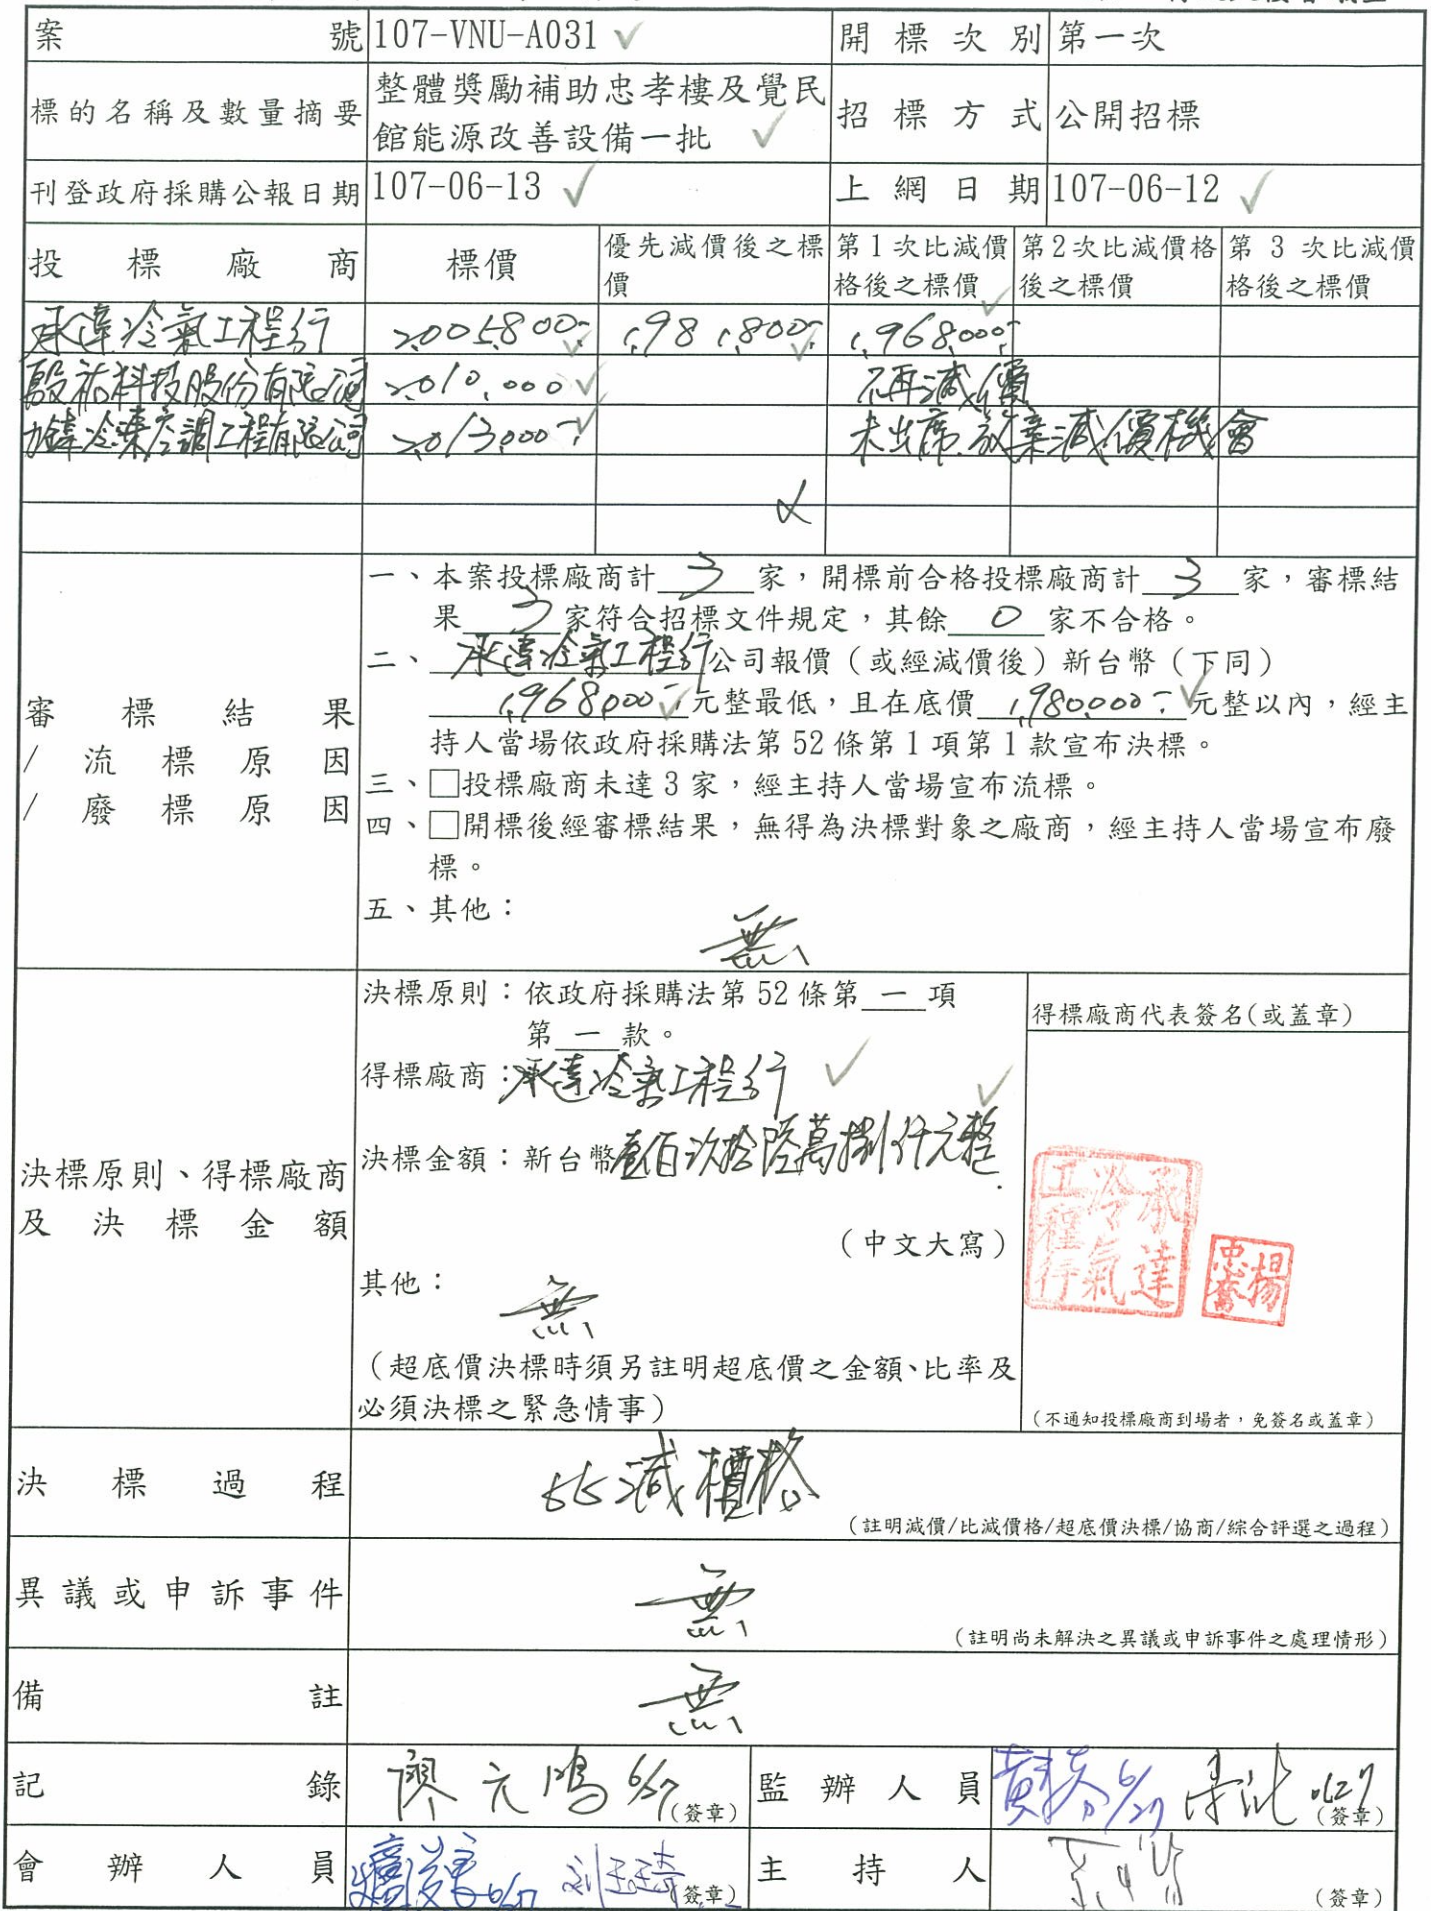 案號 107-VNU-A031 開標次別 第一次
標的名稱及數量摘要 整體獎勵補助忠孝樓及覺民
館能源改善設備一批 招標方式 公開招標
刊登政府採購公報日期 107-06-13 上網日期 107-06-12
投標廠商 標價 優先減價後之標價 第1次比減價格後之標價 第2次比減價格後之標價 第3次比減價格後之標價
承達冷氣工程行 2,005,800- 1,981,800- 1,968,000-
殷祐科技股份有限公司 2,010,000 不再減價
冷凍空調工程有限公司 2,013,000- 未出席.放棄減價機會
審標結果
/流標原因
/廢標原因
一、本案投標廠商計 3 家,開標前合格投標廠商計 3 家,審標結
果 3 家符合招標文件規定,其餘 0 家不合格。
二、承達冷氣工程行公司報價(或經減價後)新台幣(下同)
1,968,000- 元整最低,且在底價 1,980,000- 元整以內,經主
持人當場依政府採購法第52條第1項第1款宣布決標。
三、□投標廠商未達3家,經主持人當場宣布流標。
四、□開標後經審標結果,無得為決標對象之廠商,經主持人當場宣布廢
標。
五、其他:
無
決標原則、得標廠商
及決標金額
決標原則:依政府採購法第52條第 一 項
第 一 款。
得標廠商:承達冷氣工程行
決標金額:新台幣壹佰玖拾陸萬捌仟元整
(中文大寫)
其他:
無
(超底價決標時須另註明超底價之金額、比率及
必須決標之緊急情事)
得標廠商代表簽名(或蓋章)
承達
冷氣
工程行
楊
忠
(不通知投標廠商到場者,免簽名或蓋章)
決標過程 比減價格
(註明減價/比減價格/超底價決標/協商/綜合評選之過程)
異議或申訴事件 無
(註明尚未解決之異議或申訴事件之處理情形)
備註 無
記錄 廖元鳴 6/27 (簽章) 監辦人員 黃 6/27 0627 (簽章)
會辦人員 6/27 (簽章) 主持人 (簽章)